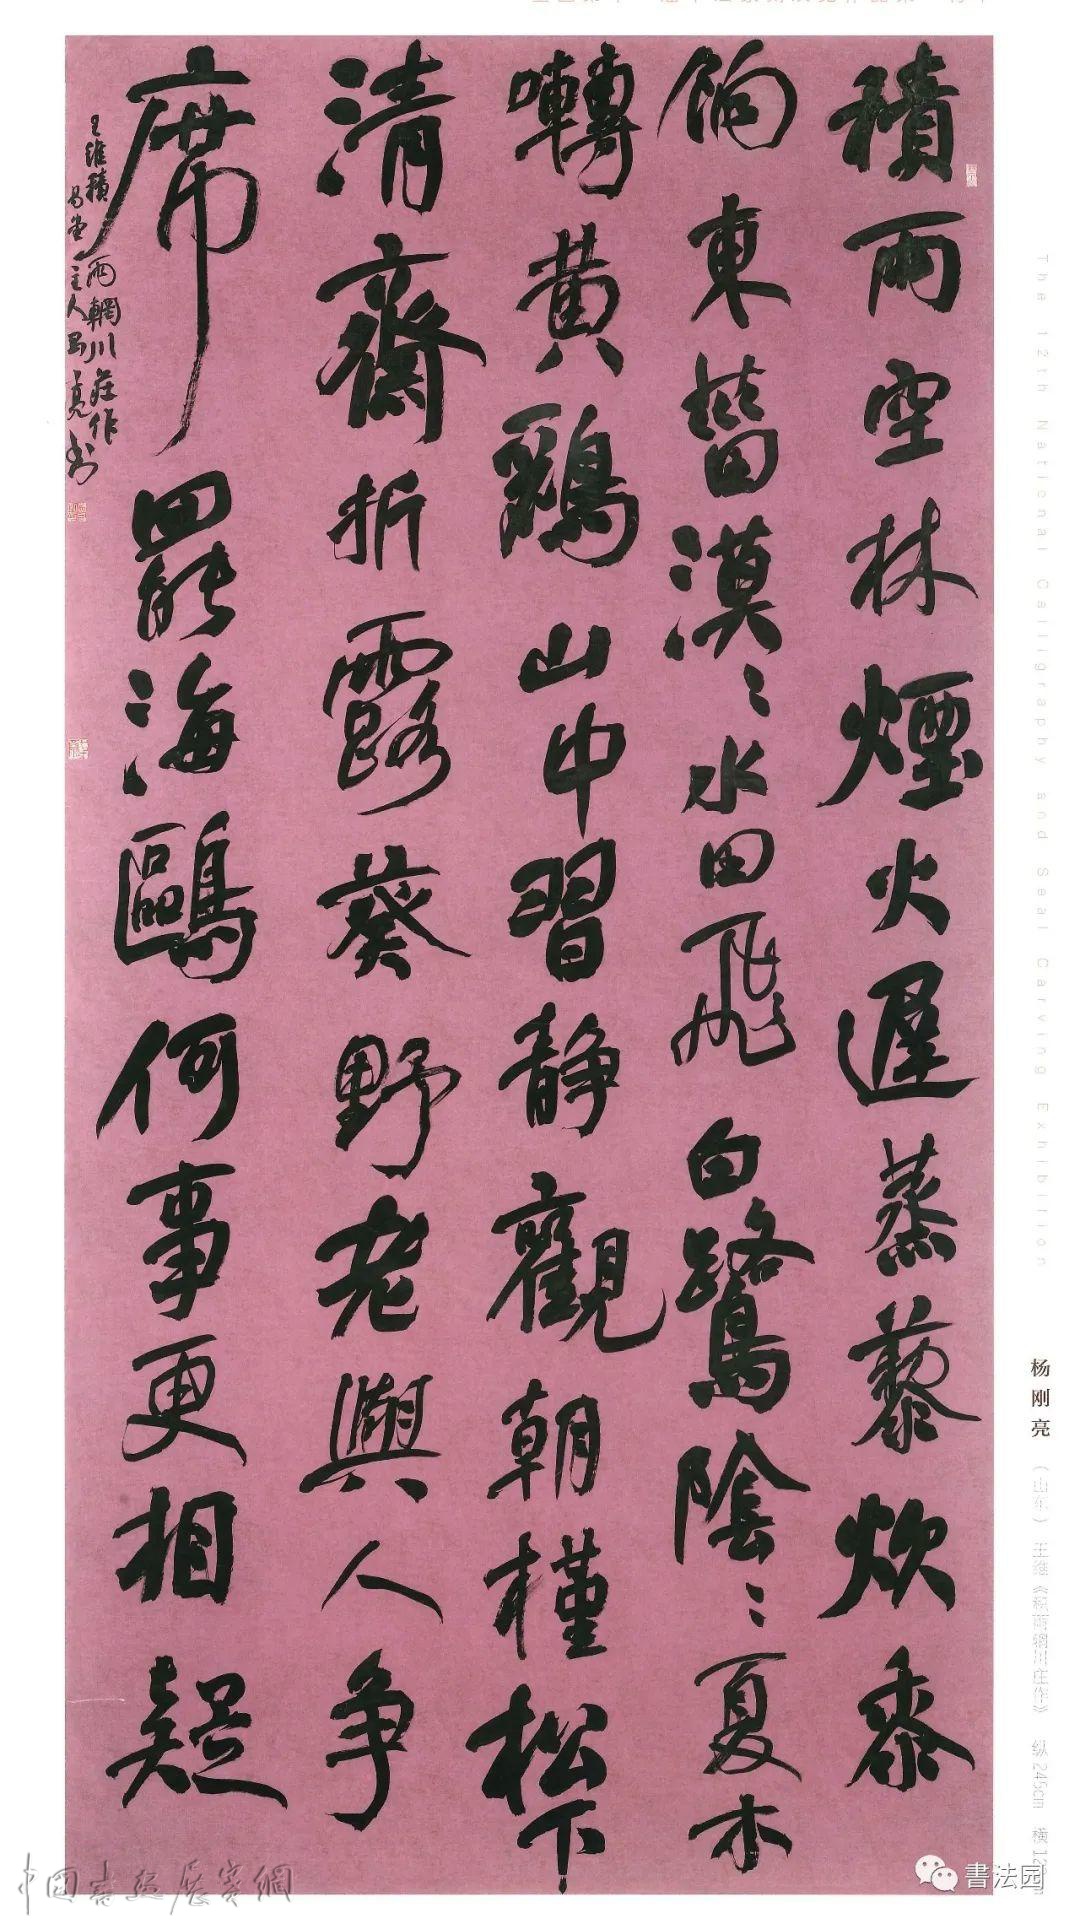 積雨空林煙火遲蒸藜炊黍
餉東菑漠〻水田飛白鷺陰〻夏木
囀黄鸝山中習靜觀朝槿松下
清齋折露葵野老與人争
席罷海鷗何事更相疑
王維積雨輞川莊作
主人
亮书
The 12th National Calligraphy and Seal Carving Exhibition
杨刚亮（山东）王维《积雨辋川庄作》 纵245cm 横12
中国书法展赛網
書法园